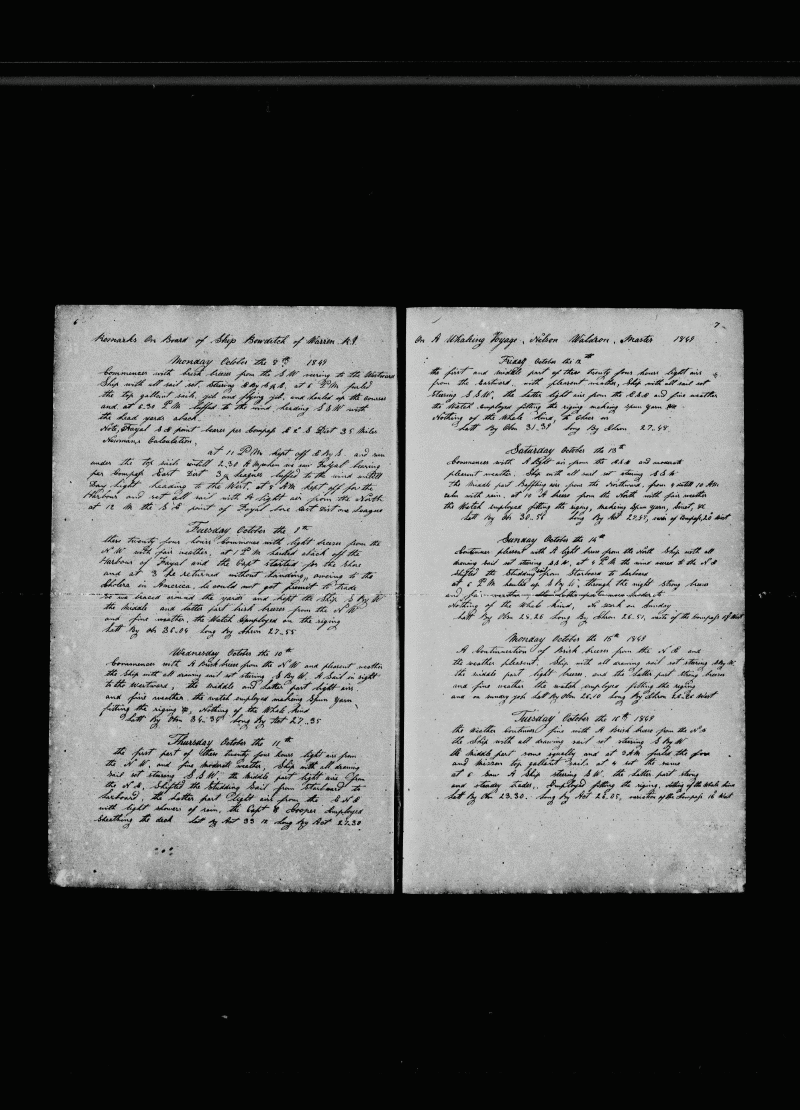 6
Remarks On Board of Ship Bowditch of Warren R I
Monday October the 8th 1849
Commences with brisk breeze from the S.W. veering to the Westward
Ship with all sail set. Stearing at 6 P.M. furled
the top gallant sails, and flying jib, and hauled up the courses
and at 6.30 P.M. luffed to the wind heading S S W with
the head yards aback
Note, Fayal point bears per Compass Dist 35 Miles
Normans Calculation.
at 11 P.M. kept off and run
under the top sails untill 2.30 A M when we saw Fayal bearing
per Compass East Dist 3 leagues luffed to the wind untill
Day light heading to the West, at 8 A M kept off for the
Harbour and set all sail with A light air from the North
at 12 M the S E point of Fayal bore East Dist one leagues
Tuesday October the 9th
these twenty four hours Commences with light breeze from the
N W with fair weather, at 1 P M hauled aback off the
Harbour of Fayal and the Capt started for the shore
and at 3 he returned without landing, oweing to the
Cholera in America, he could not get permit to trade
so we braced around the yards and kept the Ship S By W
the Middle and latter part brisk breeze from the N W
and fine weather, the Watch Employed on the riging
Latt By Ob 38.04 Long By Chron 27.55
Wednesday October the 10th
Commences with A Brisk breeze from the N W and plesent weather
the Ship with all drawing sail set stearing S By W, A Sail in sight
to the westward, the middle and latter part light airs
and fine weather the watch employed making Spun Yarn
fitting the riging &c, Nothing of the Whale Kind
Latt By Obn Long By Act 27.35
Thursday October the 11th
the first part of these twenty four hours light airs from
the N W, and fine moderate weather, Ship with all drawing
Sail set stearing S S W, the middle part light airs from
the N E, Shifted the Studding Sail from Starboard to
Larboard, the latter part light airs from the E N E
with light showers of rain, the Capt & Cooper Employed
Sheathing the deck Latt By Act 33 12 Long By Act 27.30
7
On A Whaling Voyage, Nelson Waldron, Master 1849
Friday October the 12th
the first and middle part of these twenty four hours light airs
from the Eastward with plesent weather, Ship with all sail set
Stearing S S W, the latter light airs from the and fine weather
the Watch Employed fitting the riging making spun yarn &c
Nothing of the Whale kind to Cheer us
Latt By Obn 31.38 Long By Chron 27.48
Saturday October the 13th
Commences with A light air from the and moderate
plesent weather. Ship with all sail set stearing S S W.
The Middle part Baffling airs from the Northward, from 8 untill 10 A M
calm with rain, at 10 A breeze from the North with fair weather
the Watch employed fitting the riging, making Spun Yarn, Senet, &c
Latt By Ob 30.56 Long By Act 27.57, varn of Compass 20 West
Sunday October the 14th
Continues plesent with A light breeze from the North Ship with all
drawing sail set stearing S S W, at 4 P.M the wind veered to the N E
Shifted the Studding Sails from Starboard to larboard
at 5 P.M hauled up S By W, through the night strong breeze
and
Nothing of the Whale kind, No work on Sunday
Latt By Obn 28.26 Long By Chron 26.51, varn of the Compass West
Monday October the 15th 1849
A Continuation of Brisk breeze from the N E and
the weather plesent, Ship with all drawing sail set stearing S By W
the middle part light breeze, and the latter part strong breeze
and fine weather the watch employe fitting the riging
and on sundry jobs Latt By Obn 26.10 Long By Chron West
Tuesday October the 16th 1849
the weather Continues fine with A Brisk breeze from the N E
the Ship with all drawing sail set stearing S By W
the Middle part some squally and at 3 A M furled the fore
and Mizzen top gallant Sail. at 4 set the same
at 5 Saw A Ship stearing S W, the latter part strong
and steady trades, Employed fitting the riging, Nothing of the Whale Kind
Latt By Obn 23.30. Long By Act 26.05, variation of the Compass 16 West